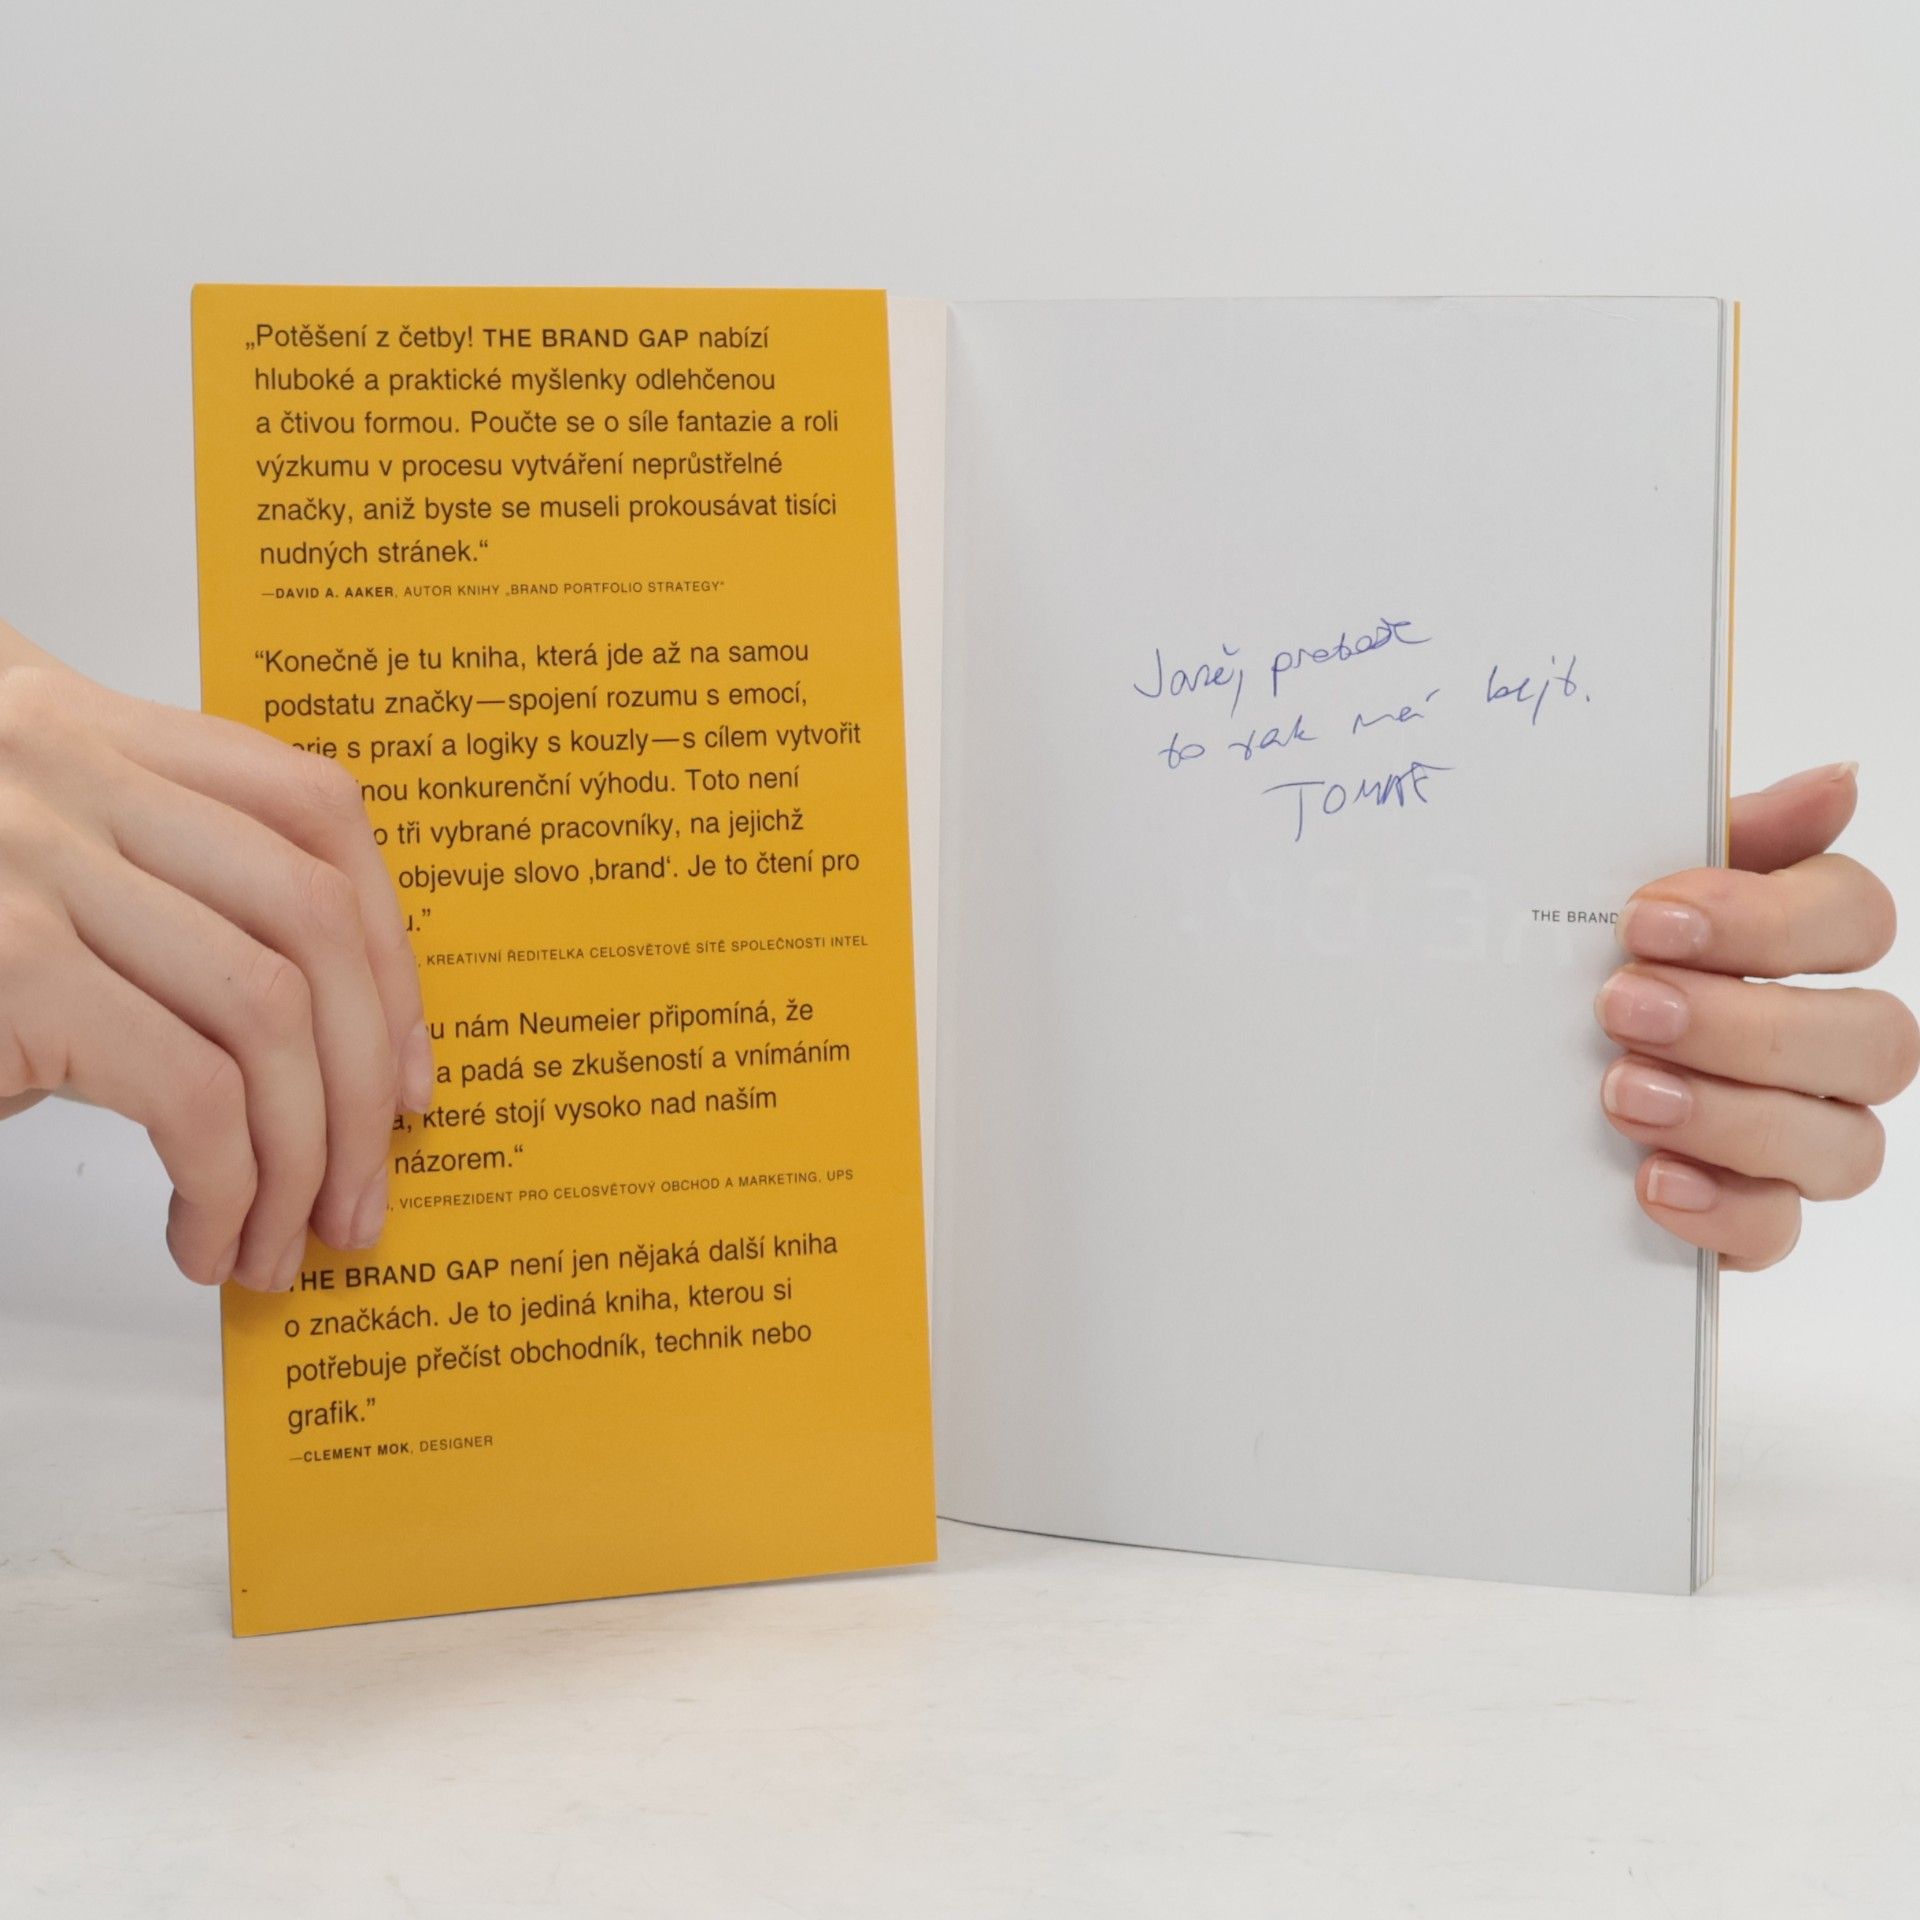 „Potěšení z četby! THE BRAND GAP nabízí
hluboké a praktické myšlenky odlehčenou
a čtivou formou. Poučte se o síle fantazie a roli
výzkumu v procesu vytváření neprůstřelné
značky, aniž byste se museli prokousávat tisíci
nudných stránek.“
—DAVID A. AAKER, AUTOR KNIHY „BRAND PORTFOLIO STRATEGY“
“Konečně je tu kniha, která jde až na samou
podstatu značky—spojení rozumu s emocí,
s praxí a logiky s kouzly—s cílem vytvořit
konkurenční výhodu. Toto není
tři vybrané pracovníky, na jejichž
objevuje slovo ‚brand‘. Je to čtení pro
KREATIVNÍ ŘEDITELKA CELOSVĚTOVÉ SÍTĚ SPOLEČNOSTI INTEL
nám Neumeier připomíná, že
a padá se zkušeností a vnímáním
které stojí vysoko nad naším
názorem.“
VICEPREZIDENT PRO CELOSVĚTOVÝ OBCHOD A MARKETING, UPS
THE BRAND GAP není jen nějaká další kniha
o značkách. Je to jediná kniha, kterou si
potřebuje přečíst obchodník, technik nebo
grafik.”
—CLEMENT MOK, DESIGNER
to má bejt.
THE BRAND